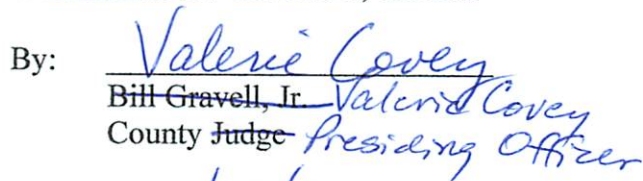 By: Valerie Covey
Bill Gravell, Jr. Valerie Covey
County Judge Presiding Officer